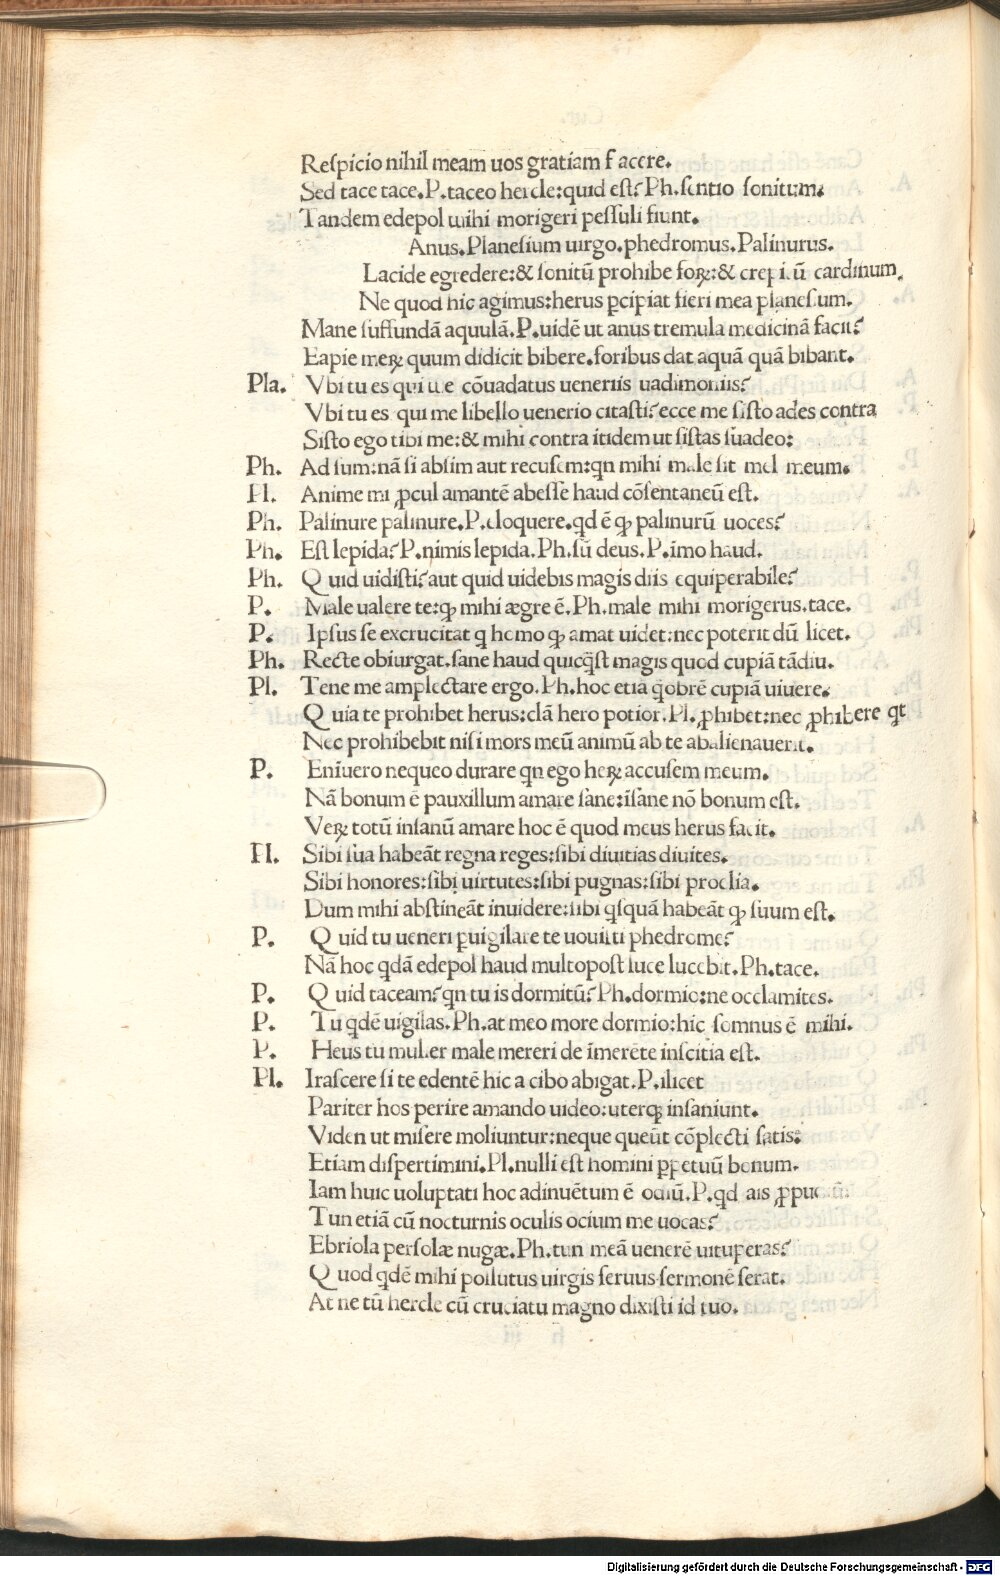 Reſpicio nihil meam uos gratiam facere.
Sed tace tace.P.taceo hercle:quid eſt? Ph.ſentio ſonitum.
Tandem edepol mihi morigeri peſſuli fiunt.
Anus.Planeſium uirgo.phedromus.Palinurus.
Lacide egredere:& ſonitū prohibe foꝝ:& crepitū cardinum.
Ne quod hic agimus:herus ꝑcipiat fieri mea planeſium.
Mane ſuffundā aquulā.P.uidē ut anus tremula medicinā facit?
Eapie meꝝ quum didicit bibere.foribus dat aquā quā bibant.
Pla. Vbi tu es qui me cōuadatus ueneriis uadimoniis?
Vbi tu es qui me libello uenerio citaſti? ecce me ſiſto ades contra
Siſto ego tibi me:& mihi contra itidem ut ſiſtas ſuadeo:
Ph. Ad ſum:nā ſi abſim aut recuſem:qn mihi male ſit mel meum.
Pl. Anime mi ꝓcul amantē abeſſe haud cōſentaneū eſt.
Ph. Palinure palinure.P.eloquere.qd ē ꝙ palinurū uoces?
Ph. Eſt lepida? P.nimis lepida.Ph.ſū deus.P.īmo haud.
Ph. Quid uidiſti? aut quid uidebis magis diis equiperabile?
P. Male ualere te:ꝙ mihi ægre ē.Ph.male mihi morigerus.tace.
P. Ipſus ſe excrucitat q homo ꝙ amat uidet:nec poterit dū licet.
Ph. Recte obiurgat.ſane haud quicq̄ſt magis quod cupiā tādiu.
Pl. Tene me amplectare ergo.Ph.hoc etiā q̄obrē cupiā uiuere.
Quia te prohibet herus:clā hero potior.Pl.ꝓhibet:nec ꝓhibere qt
Nec prohibebit niſi mors meū animū ab te abalienauerit.
P. Enīuero nequeo durare qn ego heꝝ accuſem meum.
Nā bonum ē pauxillum amare ſane:īſane nō bonum eſt.
Veꝝ totū inſanū amare hoc ē quod meus herus facit.
Pl. Sibi ſua habeāt regna reges:ſibi diuitias diuites.
Sibi honores:ſibi uirtutes:ſibi pugnas:ſibi proelia.
Dum mihi abſtineāt inuidere:ſibi qſquā habeāt ꝙ ſuum eſt.
P. Quid tu ueneri ꝑuigilare te uouiſti phedrome?
Nā hoc qdā edepol haud multopoſt luce lucebit.Ph.tace.
P. Quid taceam? qn tu is dormitū? Ph.dormio:ne occlamites.
P. Tu qdē uigilas.Ph.at meo more dormio:hic ſomnus ē mihi.
P. Heus tu mulier male mereri de īmerēte inſcitia eſt.
Pl. Iraſcere ſi te edentē hic a cibo abigat.P.ilicet
Pariter hos perire amando uideo:uterqꝫ inſaniunt.
Viden ut miſere moliuntur:neque queūt cōplecti ſatis:
Etiam diſpertimini.Pl.nulli eſt homini ꝑpetuū bonum.
Iam huic uoluptati hoc adinuētum ē odiū.P.qd ais ꝓpudiū:
Tun etiā cū nocturnis oculis ocium me uocas?
Ebriola perſolæ nugæ.Ph.tun meā uenerē uituperas?
Quod qdē mihi pollutus uirgis ſeruus ſermonē ſerat.
At ne tū hercle cū cruciatu magno dixiſti id tuo.
Digitalisierung gefördert durch die Deutsche Forschungsgemeinschaft - DFG